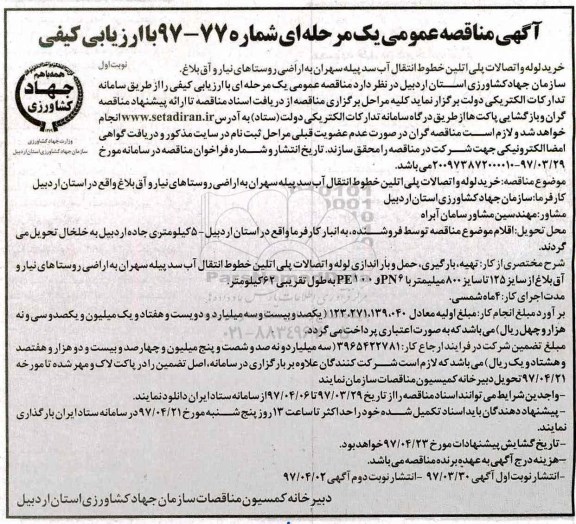 آگهی مناقصه عمومی یک مرحله ای شماره ۷۷-۹۷ با ارزیابی کیفی
نوبت اول
خرید لوله و اتصالات پلی اتلین خطوط انتقال آب سد پیله سهران به اراضی روستاهای نیار و آق بلاغ.
سازمان جهاد کشاورزی استان اردبیل در نظر دارد مناقصه عمومی یک مرحله ای با ارزیابی کیفی را از طریق سامانه
تدارکات الکتریکی دولت برگزار نماید کلیه مراحل برگزاری مناقصه از دریافت اسناد مناقصه تا ارائه پیشنهاد مناقصه
گران و بازگشایی پاکت ها از طریق درگاه سامانه تدارکات الکتریکی دولت (ستاد) به آدرس www.setadiran.ir انجام
خواهد شد و لازم است مناقصه گران در صورت عدم عضویت قبلی مراحل ثبت نام در سایت مذکور و دریافت گواهی
امضا الکترونیکی جهت شرکت در مناقصه را محقق سازند. تاریخ انتشار و شماره فراخوان مناقصه در سامانه مورخ
۹۷/۰۳/۲۹-۲۰۰۹۷۳۸۷۲۰۰۰۰۱۰ می باشد.
همه با هم
جهاد
کشاورزی
وزارت جهاد کشاورزی
سازمان جهاد کشاورزی استان اردبیل
موضوع مناقصه: خرید لوله و اتصالات پلی اتلین خطوط انتقال آب سد پیله سهران به اراضی روستاهای نیار و آق بلاغ واقع در استان اردبیل
کارفرما: سازمان جهاد کشاورزی استان اردبیل
مشاور: مهندسین مشاور سامان آبراه
محل تحویل: اقلام موضوع مناقصه توسط فروشنده، به انبار کارفرما واقع در استان اردبیل-۵ کیلومتری جاده اردبیل به خلخال تحویل می
گردند.
شرح مختصری از کار: تهیه، بارگیری، حمل و باراندازی لوله و اتصالات پلی اتلین خطوط انتقال آب سد پیله سهران به اراضی روستاهای نیار و
آق بلاغ از سایز ۱۲۵ تا سایز ۸۰۰ میلیمتر با PN۶ و PE۱۰۰ به طول تقریبی ۶۲ کیلومتر.
مدت اجرای کار: ۴ ماه شمسی.
برآورد مبلغ انجام کار: مبلغ اولیه معادل ۱۲۳,۲۷۱,۱۳۹,۰۴۰ (یکصد و بیست و سه میلیارد و دویست و هفتاد و یک میلیون و یکصد و سی و نه
هزار و چهل ریال) می باشد که به صورت اعتباری پرداخت می گردد.
مبلغ تضمین شرکت در فرایند ارجاع کار: ۳۹۶۵۴۲۲۷۸۱ (سه میلیارد و نه صد و شصت و پنج میلیون و چهارصد و بیست و دو هزار و هفتصد
و هشتاد و یک ریال) می باشد که لازم است شرکت کنندگان علاوه بر بارگزاری در سامانه، اصل تضمین را در پاکت لاک و مهر شده تا مورخه
۹۷/۰۴/۲۱ تحویل دبیرخانه کمیسیون مناقصات سازمان نمایند
- واجدین شرایط می توانند اسناد مناقصه را از تاریخ ۹۷/۰۳/۲۹ تا ۹۷/۰۴/۰۶ از سامانه ستاد ایران دانلود نمایند.
- پیشنهاد دهندگان باید اسناد تکمیل شده خود را حداکثر تا ساعت ۱۳ روز پنج شنبه مورخ ۹۷/۰۴/۲۱ در سامانه ستاد ایران بارگذاری
نمایند.
- تاریخ گشایش پیشنهادات مورخ ۹۷/۰۴/۲۳ خواهد بود.
- هزینه درج آگهی به عهده برنده مناقصه می باشد.
- انتشار نوبت اول آگهی ۹۷/۰۳/۳۰ - انتشار نوبت دوم آگهی ۹۷/۰۴/۰۲
دبیرخانه کمسیون مناقصات سازمان جهاد کشاورزی استان اردبیل